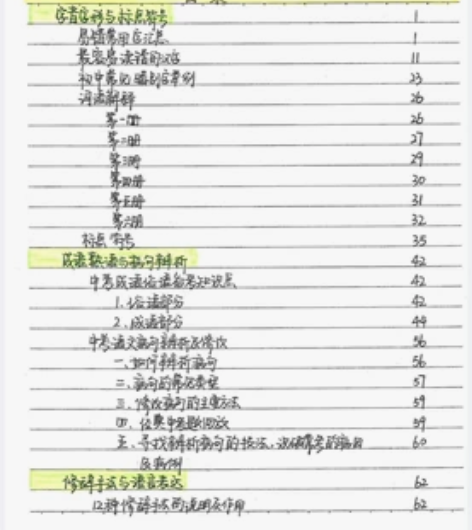 字音字形与标点符号 1
易错常用字汇总 1
最容易读错的汉字 11
初中常见错别字举例 23
词语解释 26
第一册 26
第二册 27
第三册 29
第四册 30
第五册 31
第六册 32
标点符号 35
成语熟语与病句辨析 42
中考成语俗语备考知识点 42
1. 俗语部分 42
2. 成语部分 44
中考语文病句辨析及修改 56
一、如何辨析病句 56
二、病句的常见类型 57
三、修改病句的主要方法 59
四、经典中考题回放 59
五、寻找辨析病句的技法、 常考的病句 60
及病例
修辞手法与语言表达 62
12种修辞手法的说明及作用 62